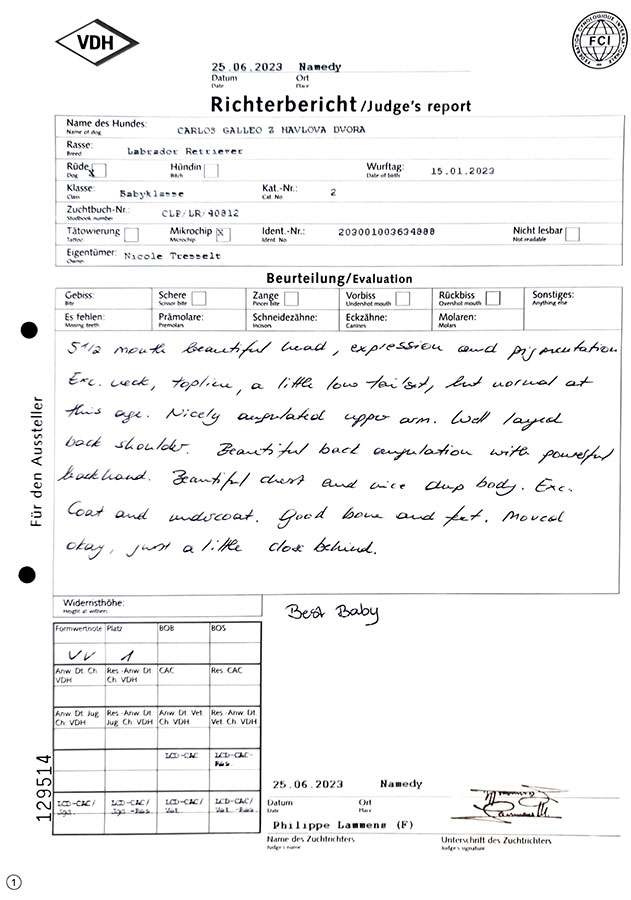 VDH
FEDERATION CYNOLOGIQUE INTERNATIONALE
FCI
25.06.2023 Namedy
Datum Ort
Date Place
Richterbericht/Judge's report
Name des Hundes: CARLOS GALLEO Z HAVLOVA DVORA
Name of dog
Rasse: Labrador Retriever
Breed
Rüde X Hündin Wurftag: 15.01.2023
Dog Bitch Date of birth
Klasse: Babyklasse Kat.-Nr.: 2
Class Cat. No
Zuchtbuch-Nr.: CLP/LR/40812
Studbook number
Tätowierung Mikrochip X Ident.-Nr.: 203001003634888 Nicht lesbar
Tattoo Microchip Ident. No Not readable
Eigentümer: Nicole Tresselt
Owner
Beurteilung/Evaluation
Gebiss: Schere Zange Vorbiss Rückbiss Sonstiges:
Bite Scissor bite Pincer bite Undershot mouth Overshot mouth Anything else
Es fehlen: Prämolare: Schneidezähne: Eckzähne: Molaren:
Missing teeth Premolars Incisors Canines Molars
5 1/2 month beautiful head, expression and pigmentation
Exc. neck, topline, a little low tailset, but normal at
this age. Nicely angulated upper arm. Well layed
back shoulder. Beautiful back angulation with powerful
backhand. Beautiful chest and nice deep body. Exc.
Coat and undercoat. Good bone and feet. Moved
okay, just a little close behind.
Für den Aussteller
Widerristhöhe:
Height at withers
Best Baby
Formwertnote Platz BOB BOS
VV 1
Anw Dt Ch VDH Res -Anw Dt Ch VDH CAC Res CAC
Anw Dt Jug Ch VDH Res -Anw Dt Jug Ch VDH Anw Dt Vet Ch VDH Res -Anw Dt Vet Ch VDH
LCD-CAC LCD-CAC-Res.
LCD-CAC/Jgd. LCD-CAC/Jgd.-Res LCD-CAC/Vet. LCD-CAC/Vet.-Res.
129514
25.06.2023 Namedy
Datum Ort
Date Place
Philippe Lammens (F)
Name des Zuchtrichters Unterschrift des Zuchtrichters
Judge's name Judge's signature
1